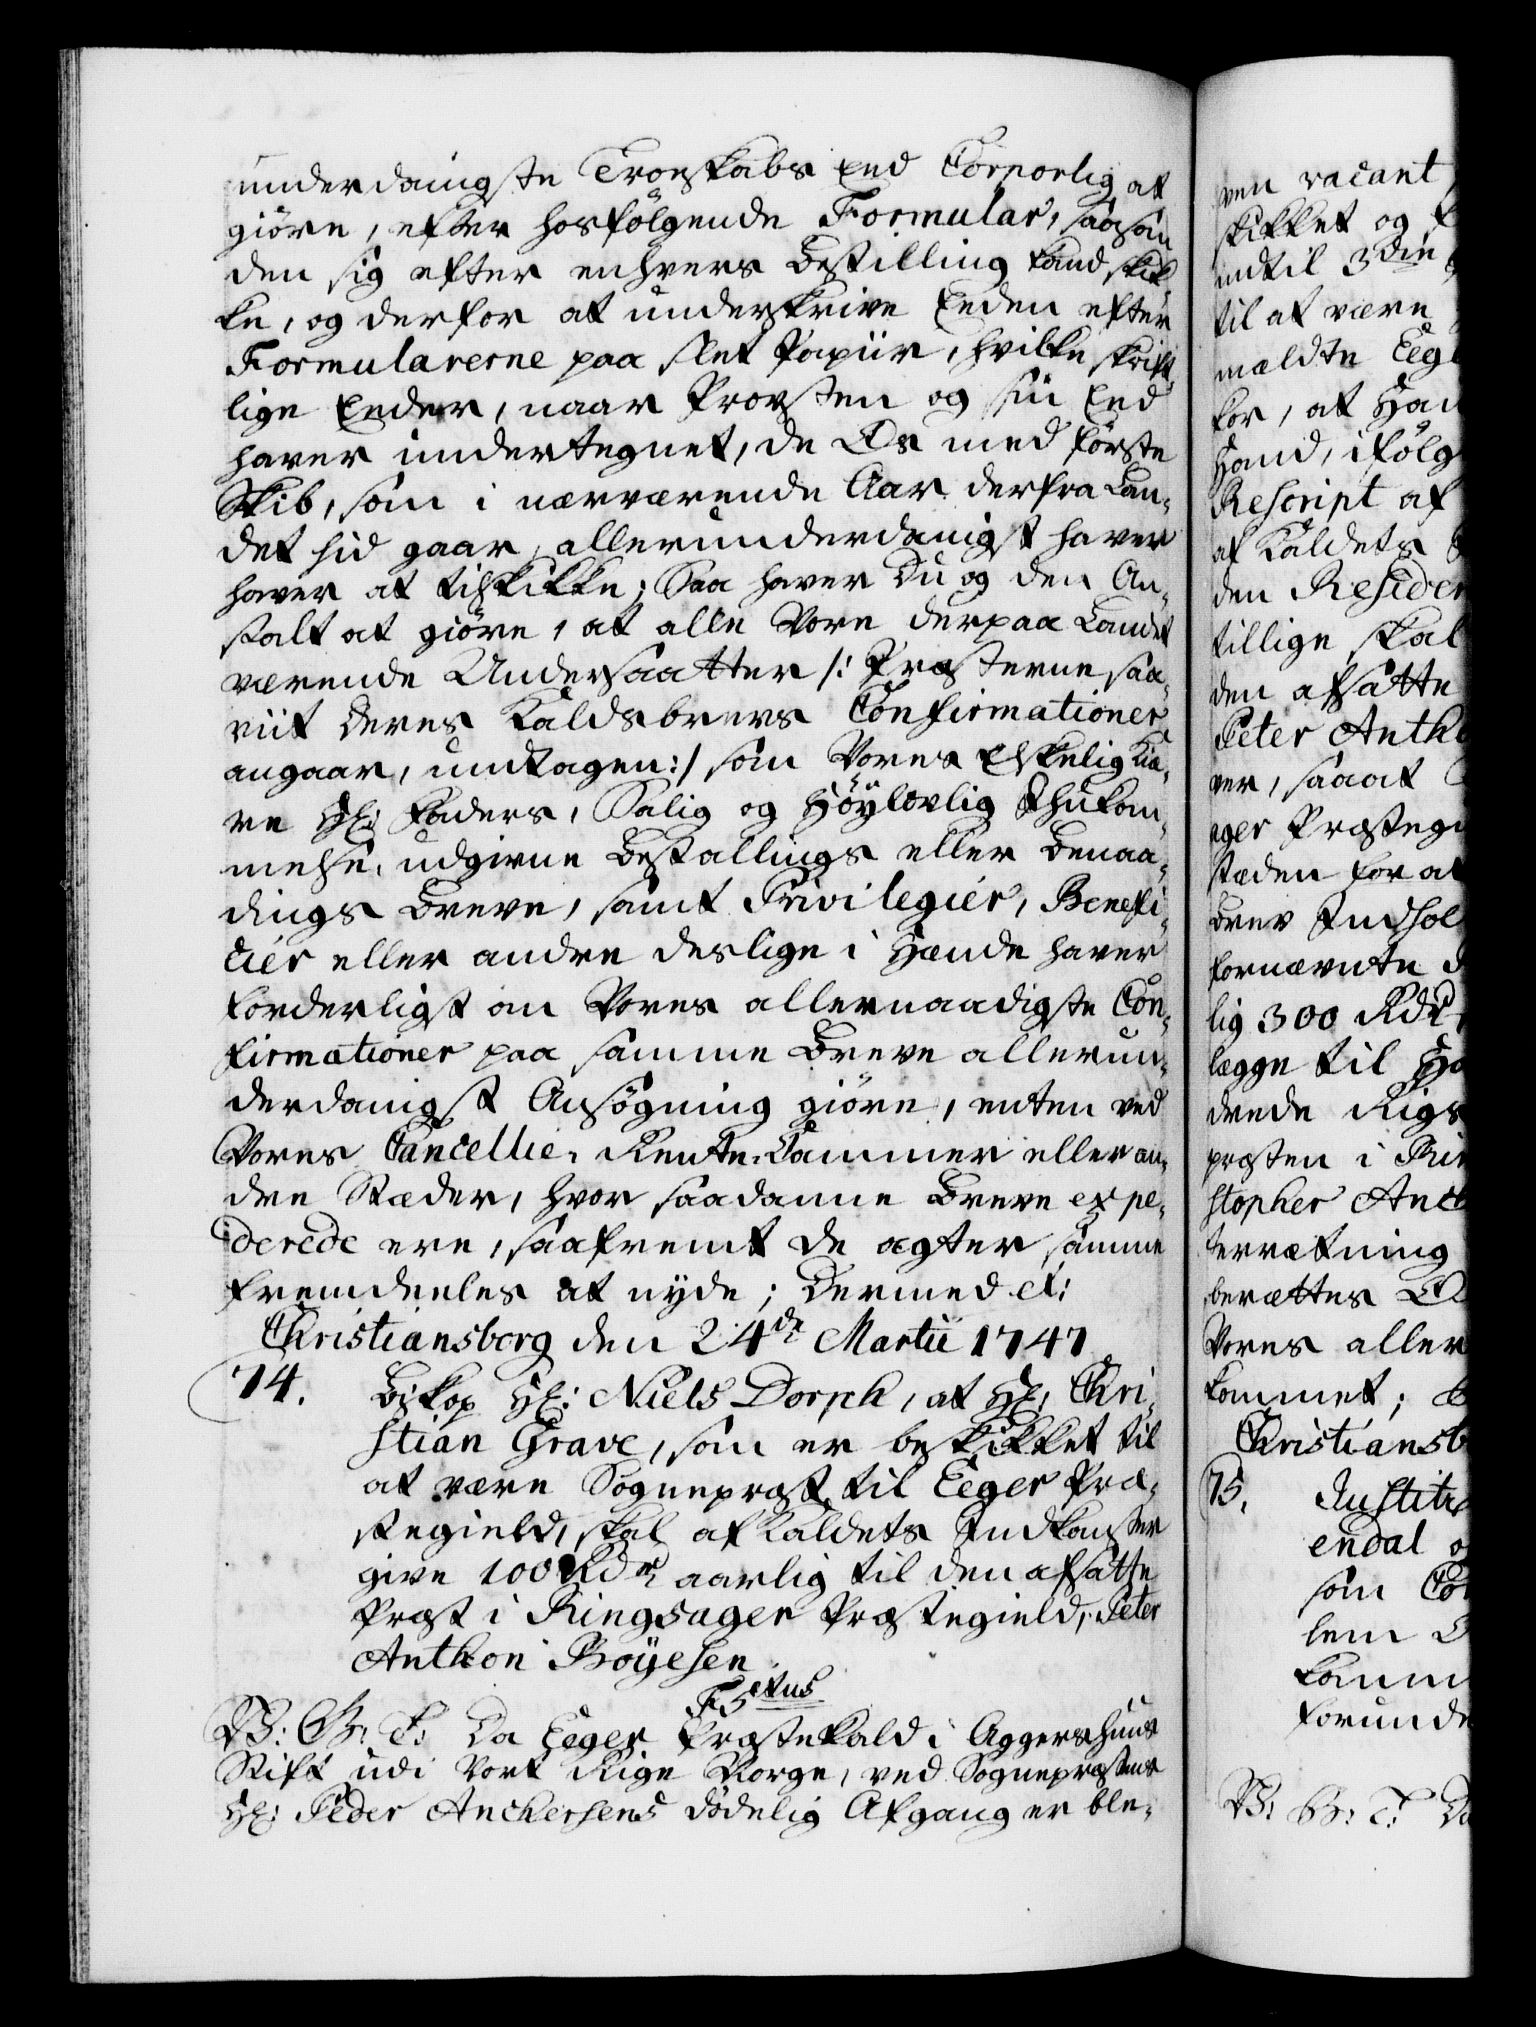 underdanigste Troeskabs Eed Corporlig at
giöre, efter hosfölgende Formular, saasom
den sig efter enhvers Bestilling kand skik
ke, og derfor at underskrive Eeden efter
Formularerne paa slet Papiir, hvilke skrift
lige Eeder, naar Provsten og sin Eed
haver undertegnet, de Os med förste
Skib, som i nærværende Aar derfra Lan,
det hid gaar, allerunderdanigst haver
haver at tilskikke; Saa haver Du og den An,
stalt at giöre, at alle Vore derpaa Landet
værende Undersaatter /: Præsterne saa,
viit deres Kaldsbrevs Confirmationer
angaar, undtagen :/ som Vores Elskelig Kiæ,
re Hr: Faders, Salig og Höylovlig Ihukom,
melse, udgivne Bestallings eller Benaa,
dings Breve, samt Privilegier, Benefi,
cier eller andre deslige i Hænde haver
forderligst om Vores allernaadigste Con,
firmationer paa samme Breve allerun,
derdanigst Ansögning giöre, enten ved
Vores Cancellie, Rente-Cammer eller an,
dre Stæder, hvor saadanne Breve expe,
derede ere, saafremt de agter samme
fremdeeles at nyde; Dermed etc:
Christiansborg den 24de Martii 1747
74. Biskop Hr: Niels Dorph, at Hr: Chri,
stian Grave, som er beskikket til
at være Sogneprest til Eeger Præ,
stegield, skal af Kaldets Indkomster
give 100 Rdr aarlig til den afsatte
Præst i Ringsager Præstegield, Peter
Anthon Böyesen.
F5tus
V: G: T: Da Eeger Præstekald i Aggershuus
Stift udi Vort Rige Norge, ved Sogneprestens
Hr: Peder Anchersens dödelig Afgang er ble,
ven vacant,
skikket og
indtil 3die
til at være
meldte Eeg
for, at Han
Hand, ifölg
Rescript af
af Kaldets
den Residen
tillige skal
den afsatte
Peter Antho
ver, saaat
ager Præsteg
stæden for at
brev Indhol
fornævnte
lig 300 Rdr
lægge til Ha
drede Rigs
presten i Rin
stopher Anch
terretning
berettes
Vores aller
kommet;
Christiansb
75. Justitz
endal
som Co
lem
komm
forunde
V: G: T: Da